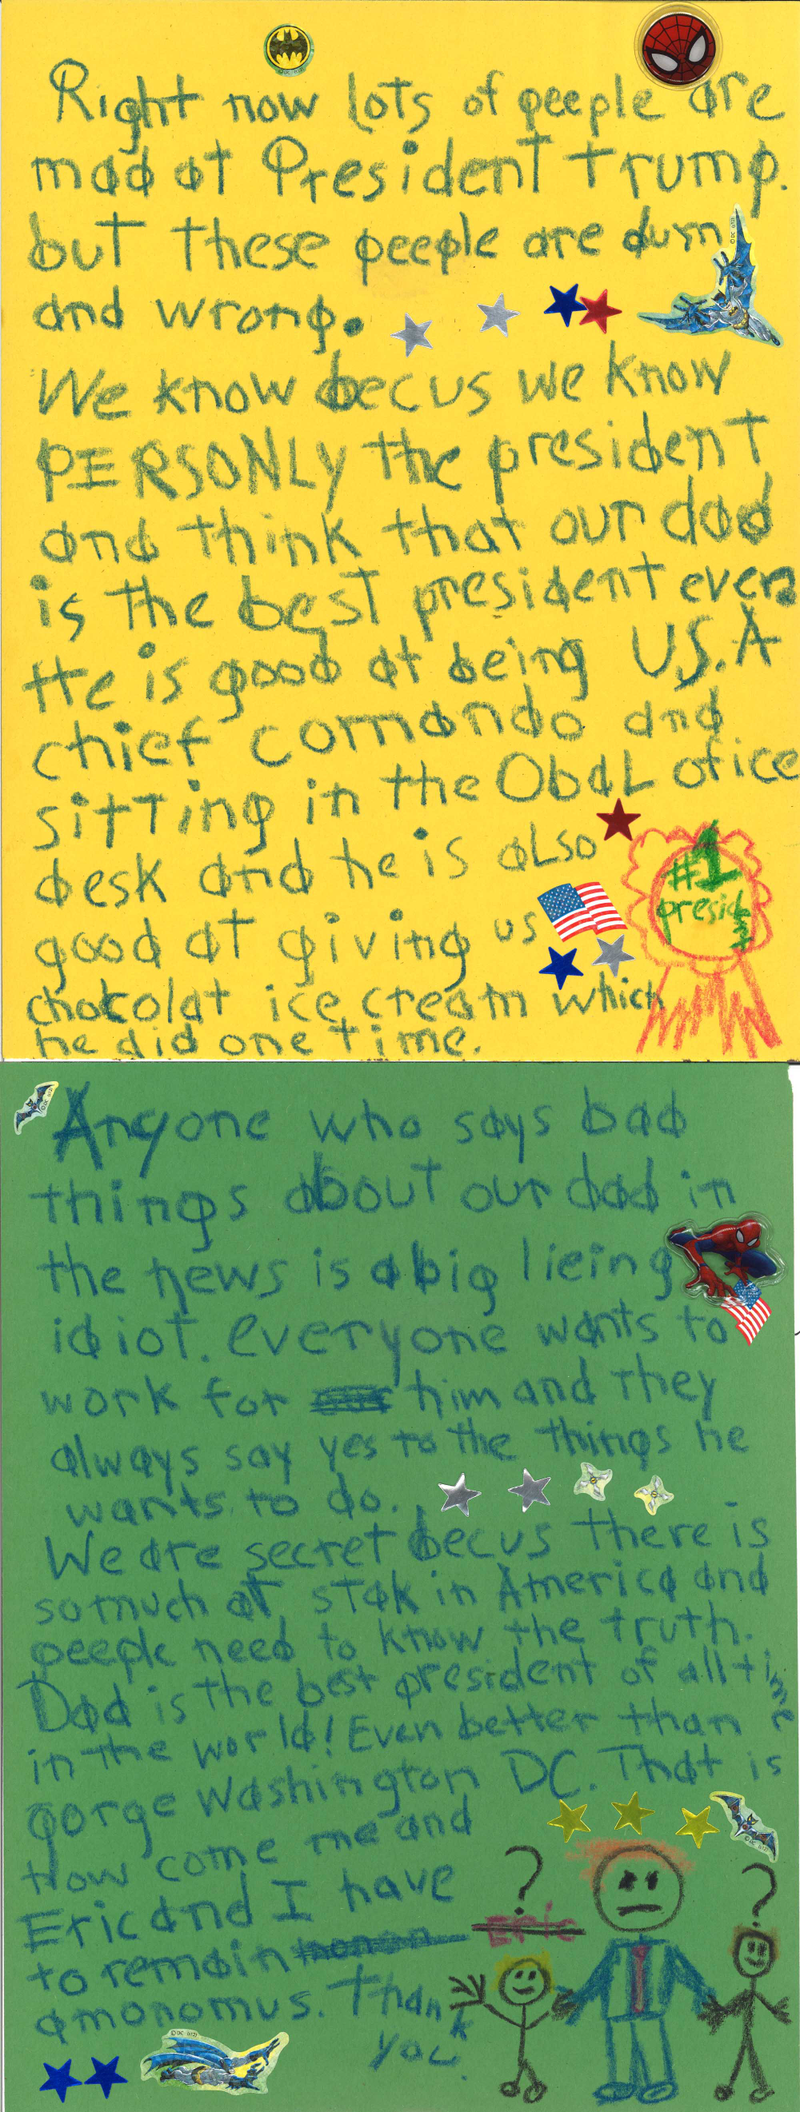 Right now lots of peeple are
mad at President trump.
but these peeple are dum
and wrong.
We know becus we know
PERSONLY the president
and think that our dad
is the best president ever.
He is good at being U.S.A
chief comando and
sitting in the Obal ofice
desk and he is also
good at giving us
chokolat ice cream which
he did one time.
#1
presid
Anyone who says bad
things about our dad in
the news is a big lieing
idiot. everyone wants to
work for him and they
always say yes to the things he
wants to do.
We are secret becus there is
so much at stak in America and
peeple need to know the truth.
Dad is the best president of all time
in the world! Even better than
gorge washington DC. That is
how come me and
Eric and I have
to remain
amonomus. Thank
you.
?
Eric
?